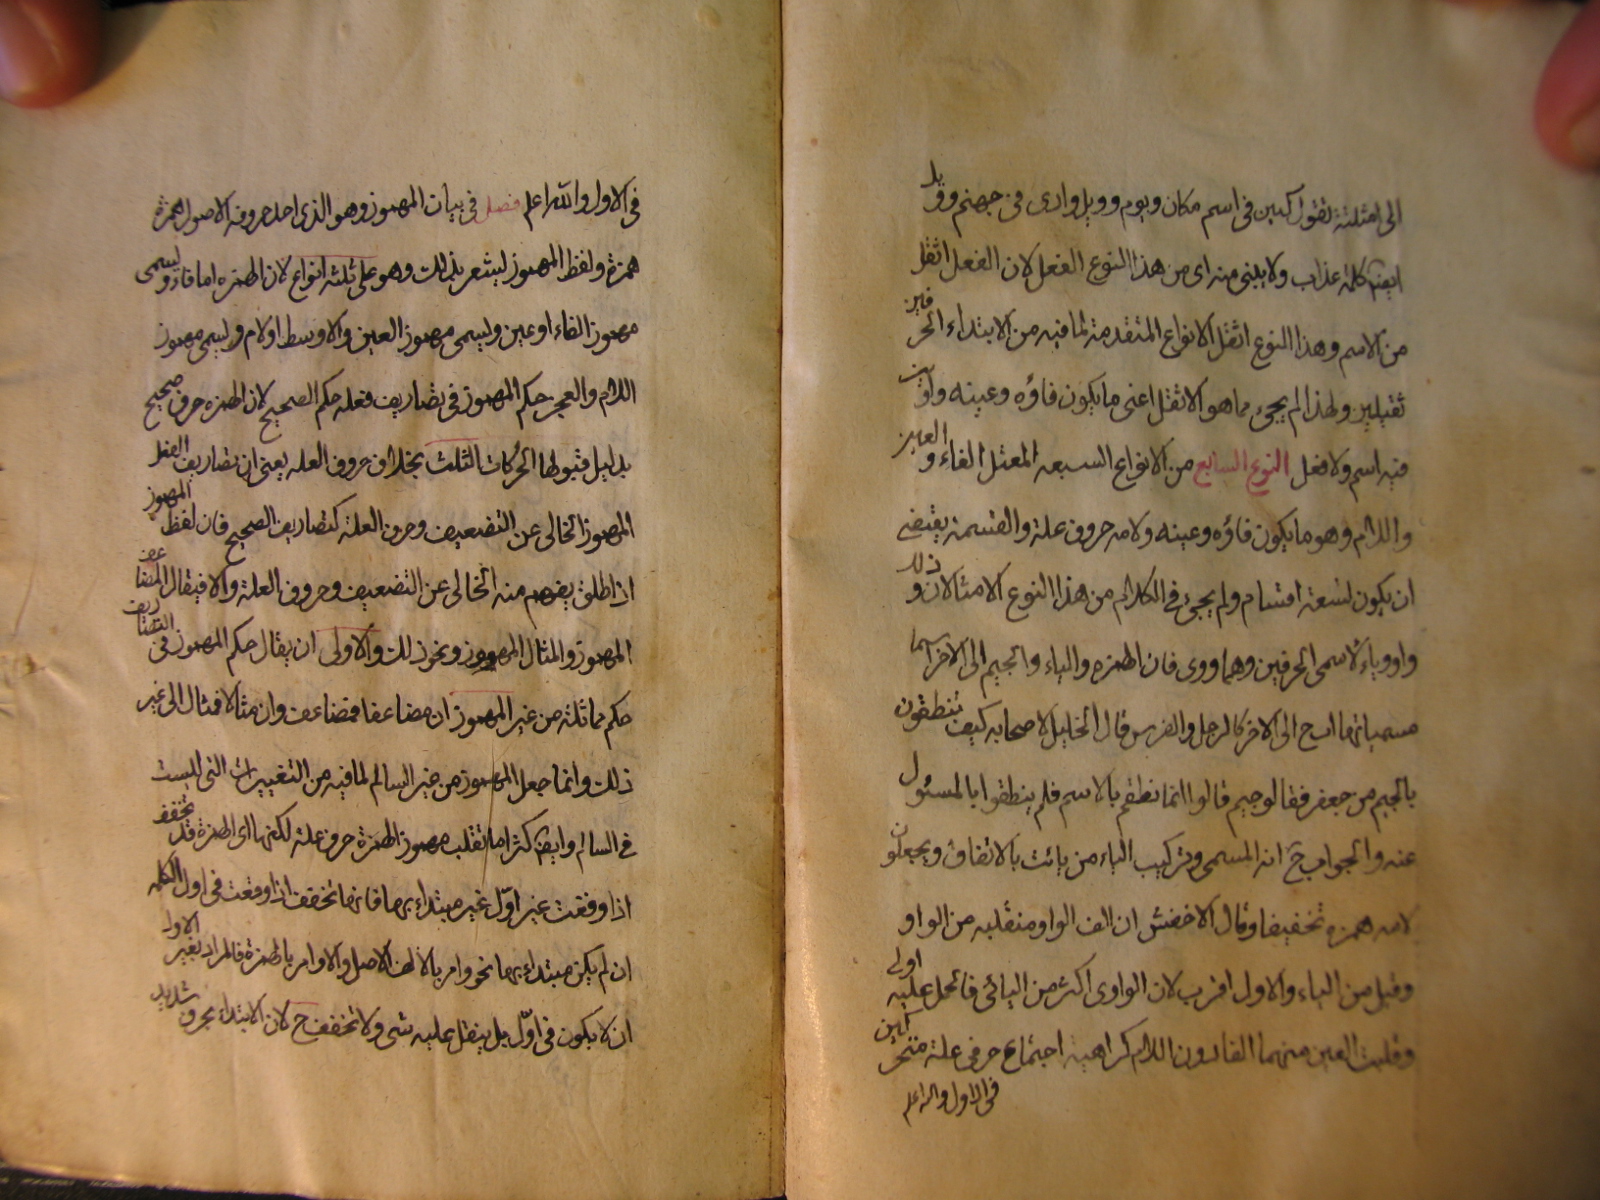 الى امثلته تقول كيين فى اسم مكان ويوم وويل وادى فى جهنم وويل
ايضا كلمة عذاب ولا يبنى منه اى من هذا النوع الفعل لان الفعل اثقل
من الاسم وهذا النوع اثقل الانواع المتقدمة لما فيه من الابتداء بالحرفين
ثقيلين ولهذا لم يجئ مما هو الاثقل اعنى ما يكون فاؤه وعينه واوين
فيه اسم ولا فعل النوع السابع من الانواع السبعه المعتل الفاء والعين
واللام وهو ما يكون فاؤه وعينه ولامه حروف علة والقسمة يقتضى
ان يكون تسعة اقسام ولم يجئ فى الكلام من هذا النوع الا مثالان وذلك
واو وياء لاسمى الحرفين وهما و وى فان الهمزه والياء والجيم الى الاخر اسما
مسمياتها اب ج الى الاخر كالرجل والفرس قال الخليل لاصحابه كيف تنطقون
بالجيم من جعفر فقالو جيم قال انما نطقتم بالاسم فلم ينطقوا بالمسئول
عنه والجواب جَ انه المسمى وتركيب الياء من يائت بالاتفاق ويجعلون
لامه همزه تخفيفا وقال الاخفش ان الف الواو منقلبه من الواو
وقيل من الياء والاول اقرب لان الواوى اكثر من اليائى فالحمل عليه اولى
وقلبت العين منهما الفا دون اللام كراهية اجتماع حرفى علة متحركين
فى الاول والله اعلم
فى الاول والله اعلم فصل فى بيان المهموز وهو الذى احد حروفه الاصول همزة
همزة ولفظ المهموز ليشعر بذلك وهو على ثلثه انواع لان الهمزه اما فاء ويسمى
مهموز الفاء او عين ويسمى مهموز العين والاوسط او لام ويسمى مهموز
اللام والعجز حكم المهموز فى تصاريف فعله حكم الصحيح لان الهمزه حرف صحيح
بدليل قبولها الحركات الثلث بخلاف حروف العلة يعنى ان تصاريف الفعل
المهموز الخالى عن التضعيف وحرف العلة كتصاريف الصحيح فان لفظ المهموز
اذا طلق يفهم منه الخالى عن التضعيف وحروف العلة والا فيقال المضاعف
المهموز والمثال المهموز ونحو ذلك والاولى ان يقال حكم المهموز فى التصاريف
حكم مماثلته من غير المهموز ان مضاعفا فمضاعف وان مثالا فمثال الى غير
ذلك وانما جعل المهموز من غير السالم لما فيه من التغييرات التى ليست
فى السالم وايضا كثيرا ما تقلب مهموز الهمزة حرف علة لكنها اى الهمزة قد تخفف
اذا وقعت غير اوّل غير مبتداء بها فانها تخفف اذا وقعت فى اول الكلمة
ان لم يكن مبتداء بها نحو وامر بالالف الاصل والاوامر بالهمزة فالمراد بغير الاول
ان لا يكون فى اوّل بل ينقل عليه شى ولا تخفف ح لان الابتداء بحرف شديد